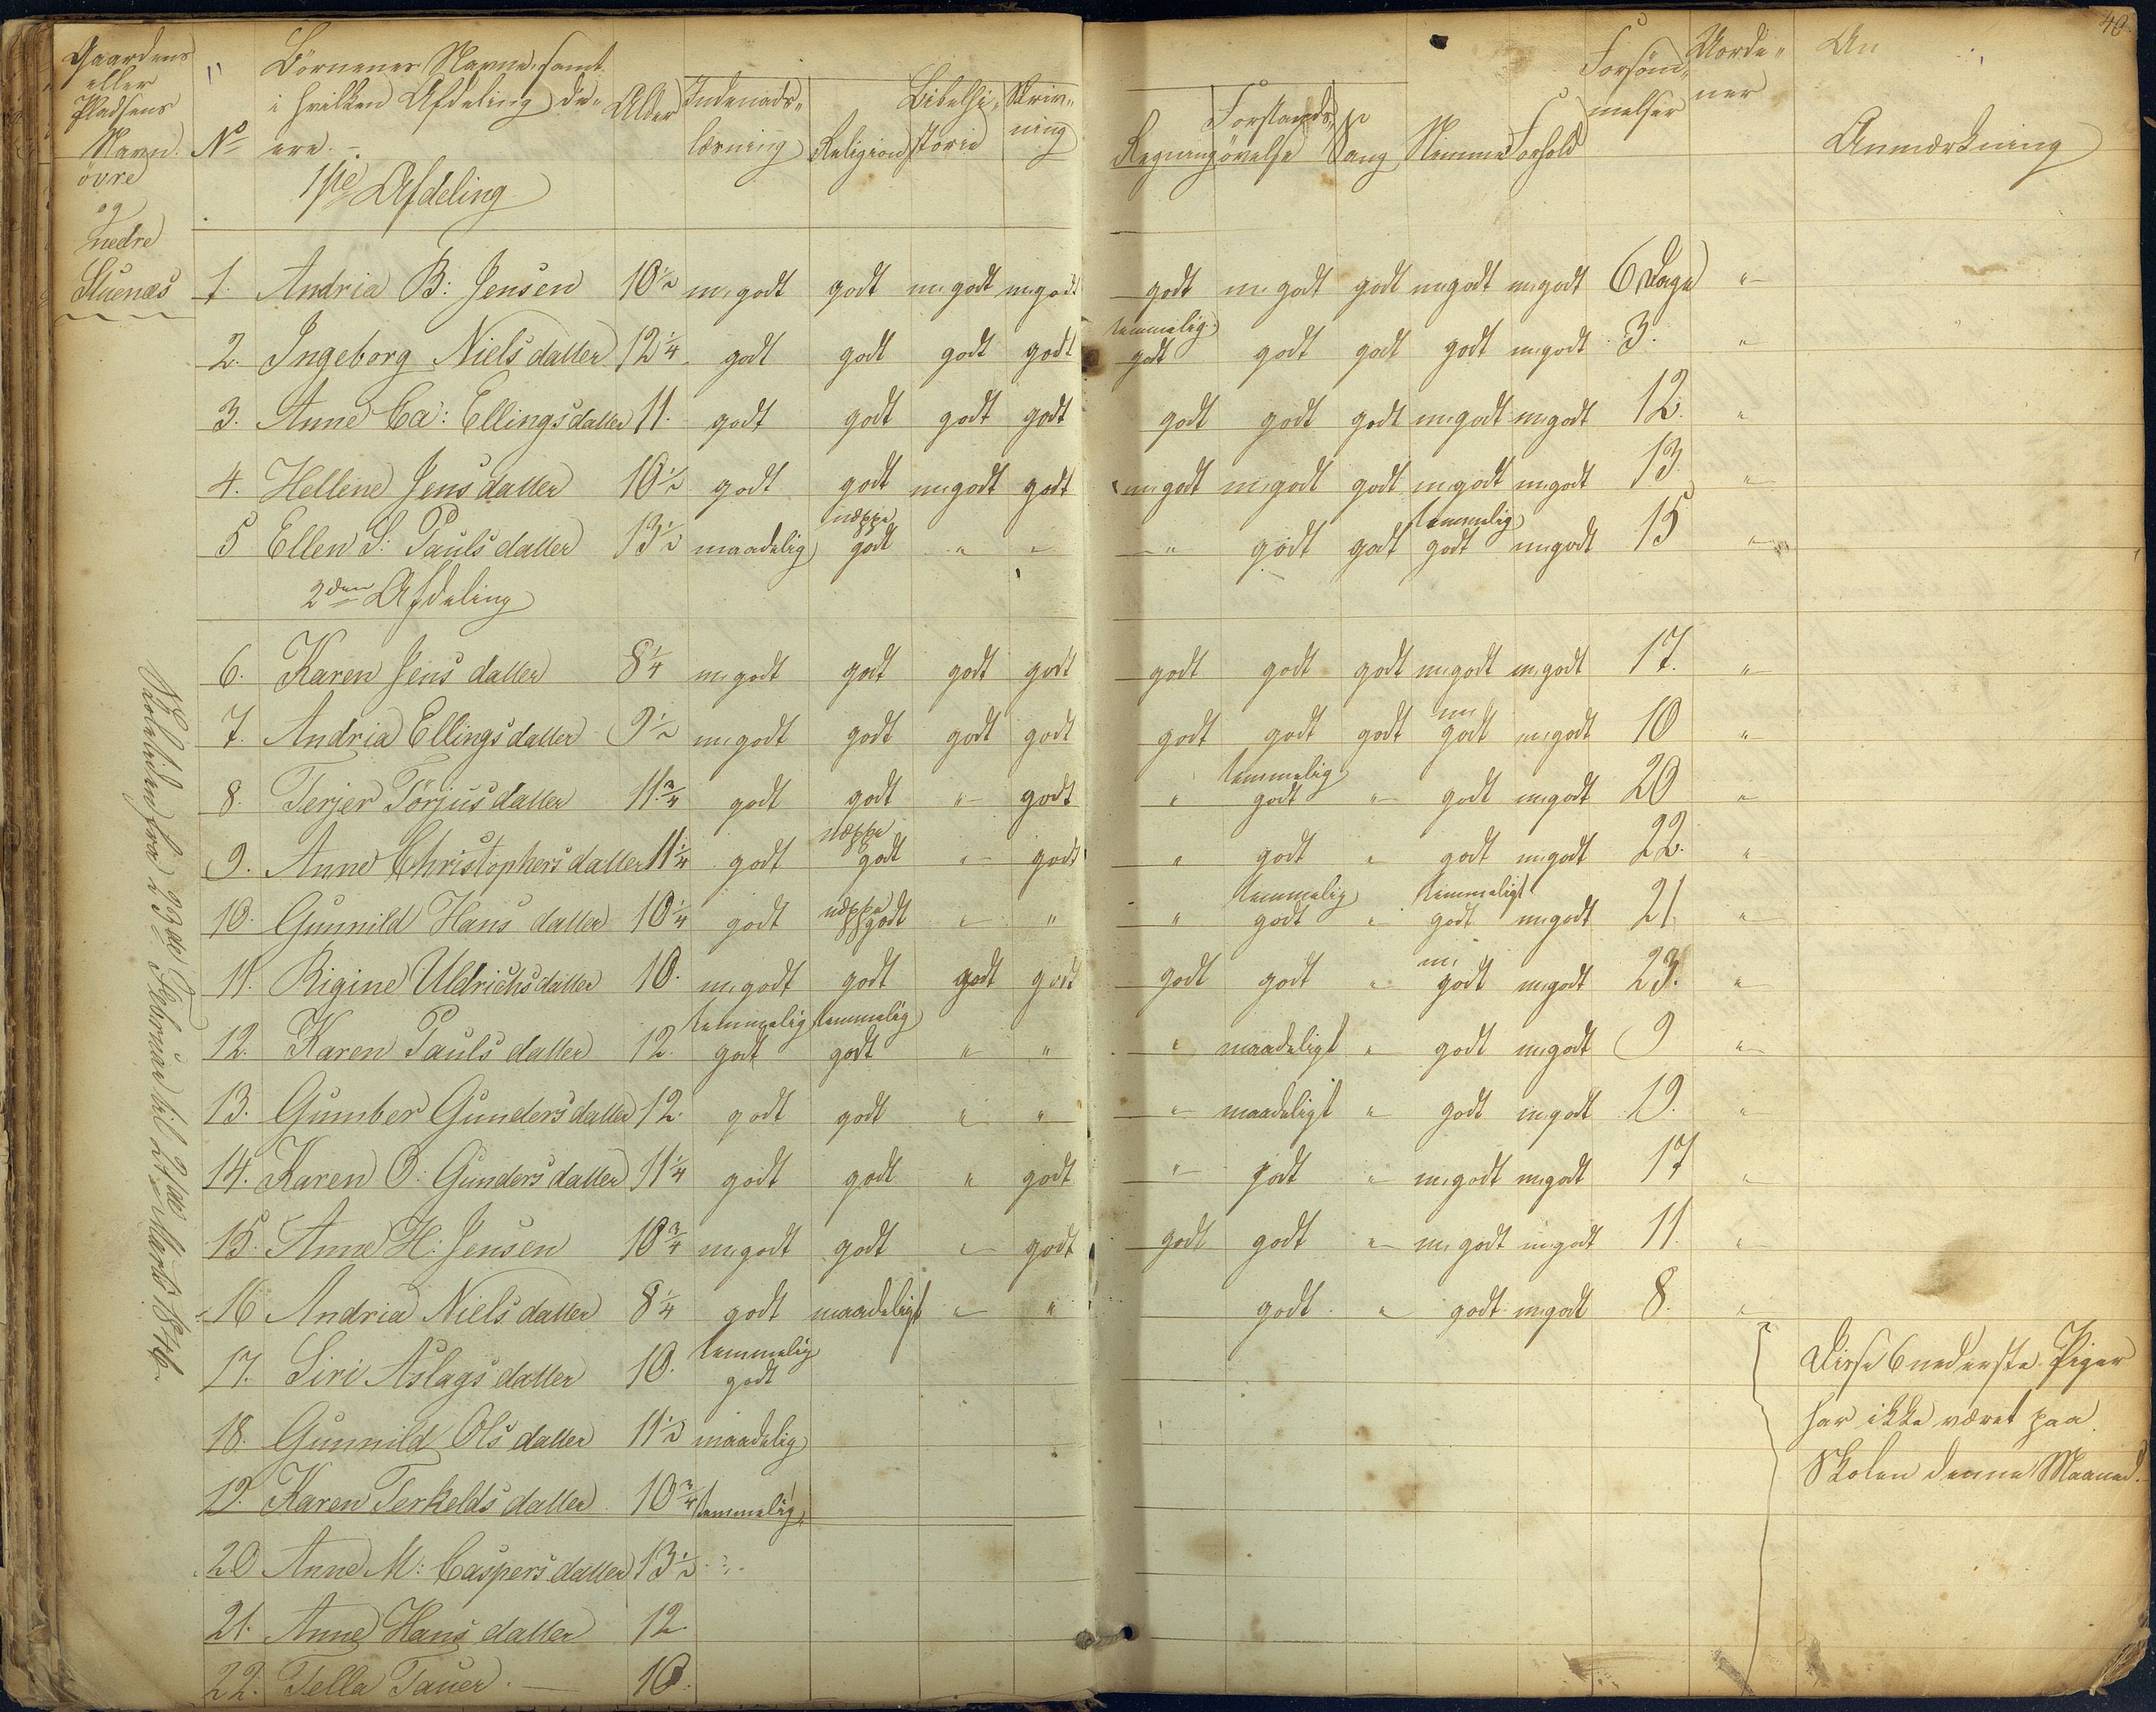 40.
Gaardens eller Pladsens Navn.
No
Börnenes Navne, samt i hvilken Afdeling de ere.
Alder
Indenads-læsning
Religion
Bibelhistorie
Skrivning
Regning
Forstands-øvelse
Sang
Nemme
Forhold
Forsömmelser
Uorde-ner
An
Anmærkning
övre og nedre Stuenæs
1ste Afdeling
1. Andria B: Jensen 10½ m.godt godt m.godt m.godt godt m.godt godt m.godt m.godt 6 Dage "
2. Ingeborg Nielsdatter 12¼ godt godt godt godt temmelig godt godt godt godt m.godt 3. "
3. Anne Ca: Ellingsdatter 11. godt godt godt godt godt godt godt m.godt m.godt 12. "
4. Hellene Jensdatter 10½ godt godt m.godt godt m.godt m.godt godt m.godt m.godt 13 "
5 Ellen S: Paulsdatter 13½ maadelig neppe godt " " " godt godt temmelig godt m.godt 15 "
2den Afdeling
6. Karen Jensdatter 8¼ m.godt godt godt godt godt godt godt m.godt m.godt 17. "
7. Andria Ellingsdatter 9½ m.godt godt godt godt godt godt godt m. godt m.godt 10 "
8. Terjer Törjusdatter 11¾ godt godt " godt " temmelig godt " godt m.godt 20 "
9. Anne Christophersdatter 11¼ godt neppe godt " godt " godt " godt m.godt 22. "
10. Gunnild Hansdatter 10¼ godt neppe godt " " " temmelig godt " temmeligt godt m.godt 21. "
11. Rigine Uldrichsdatter 10. m.godt godt godt godt godt godt " m. godt m.godt 23. "
12. Karen Paulsdatter 12. temmelig godt temmelig godt " " " maadeligt " godt m.godt 9 "
13. Gumber Gundersdatter 12. godt godt " " " maadeligt " godt m.godt 19. "
14. Karen O: Gundersdatter 11¼ godt godt " godt " godt " m.godt m.godt 17 "
15. Anne H: Jensen 10¾ m.godt godt " godt godt godt " m.godt m.godt 11. "
16 Andria Nielsdatter 8¼ godt maadeligt " " godt " godt m.godt 8. "
17. Siri Aslagsdatter 10. temmelig godt
18. Gunnild Olsdatter 11½ maadelig
19. Karen Terkeldsdatter 10¾ temmelig
20 Anne M: Caspersdatter 13½ "
21. Anne Hansdatter 12.
22. Tella Tauer. 10.
Disse 6 nederste Piger
har ikke været paa
Skolen denne Maaned.
Skoletiden fra 23de Februar til 21de Marts 1846.